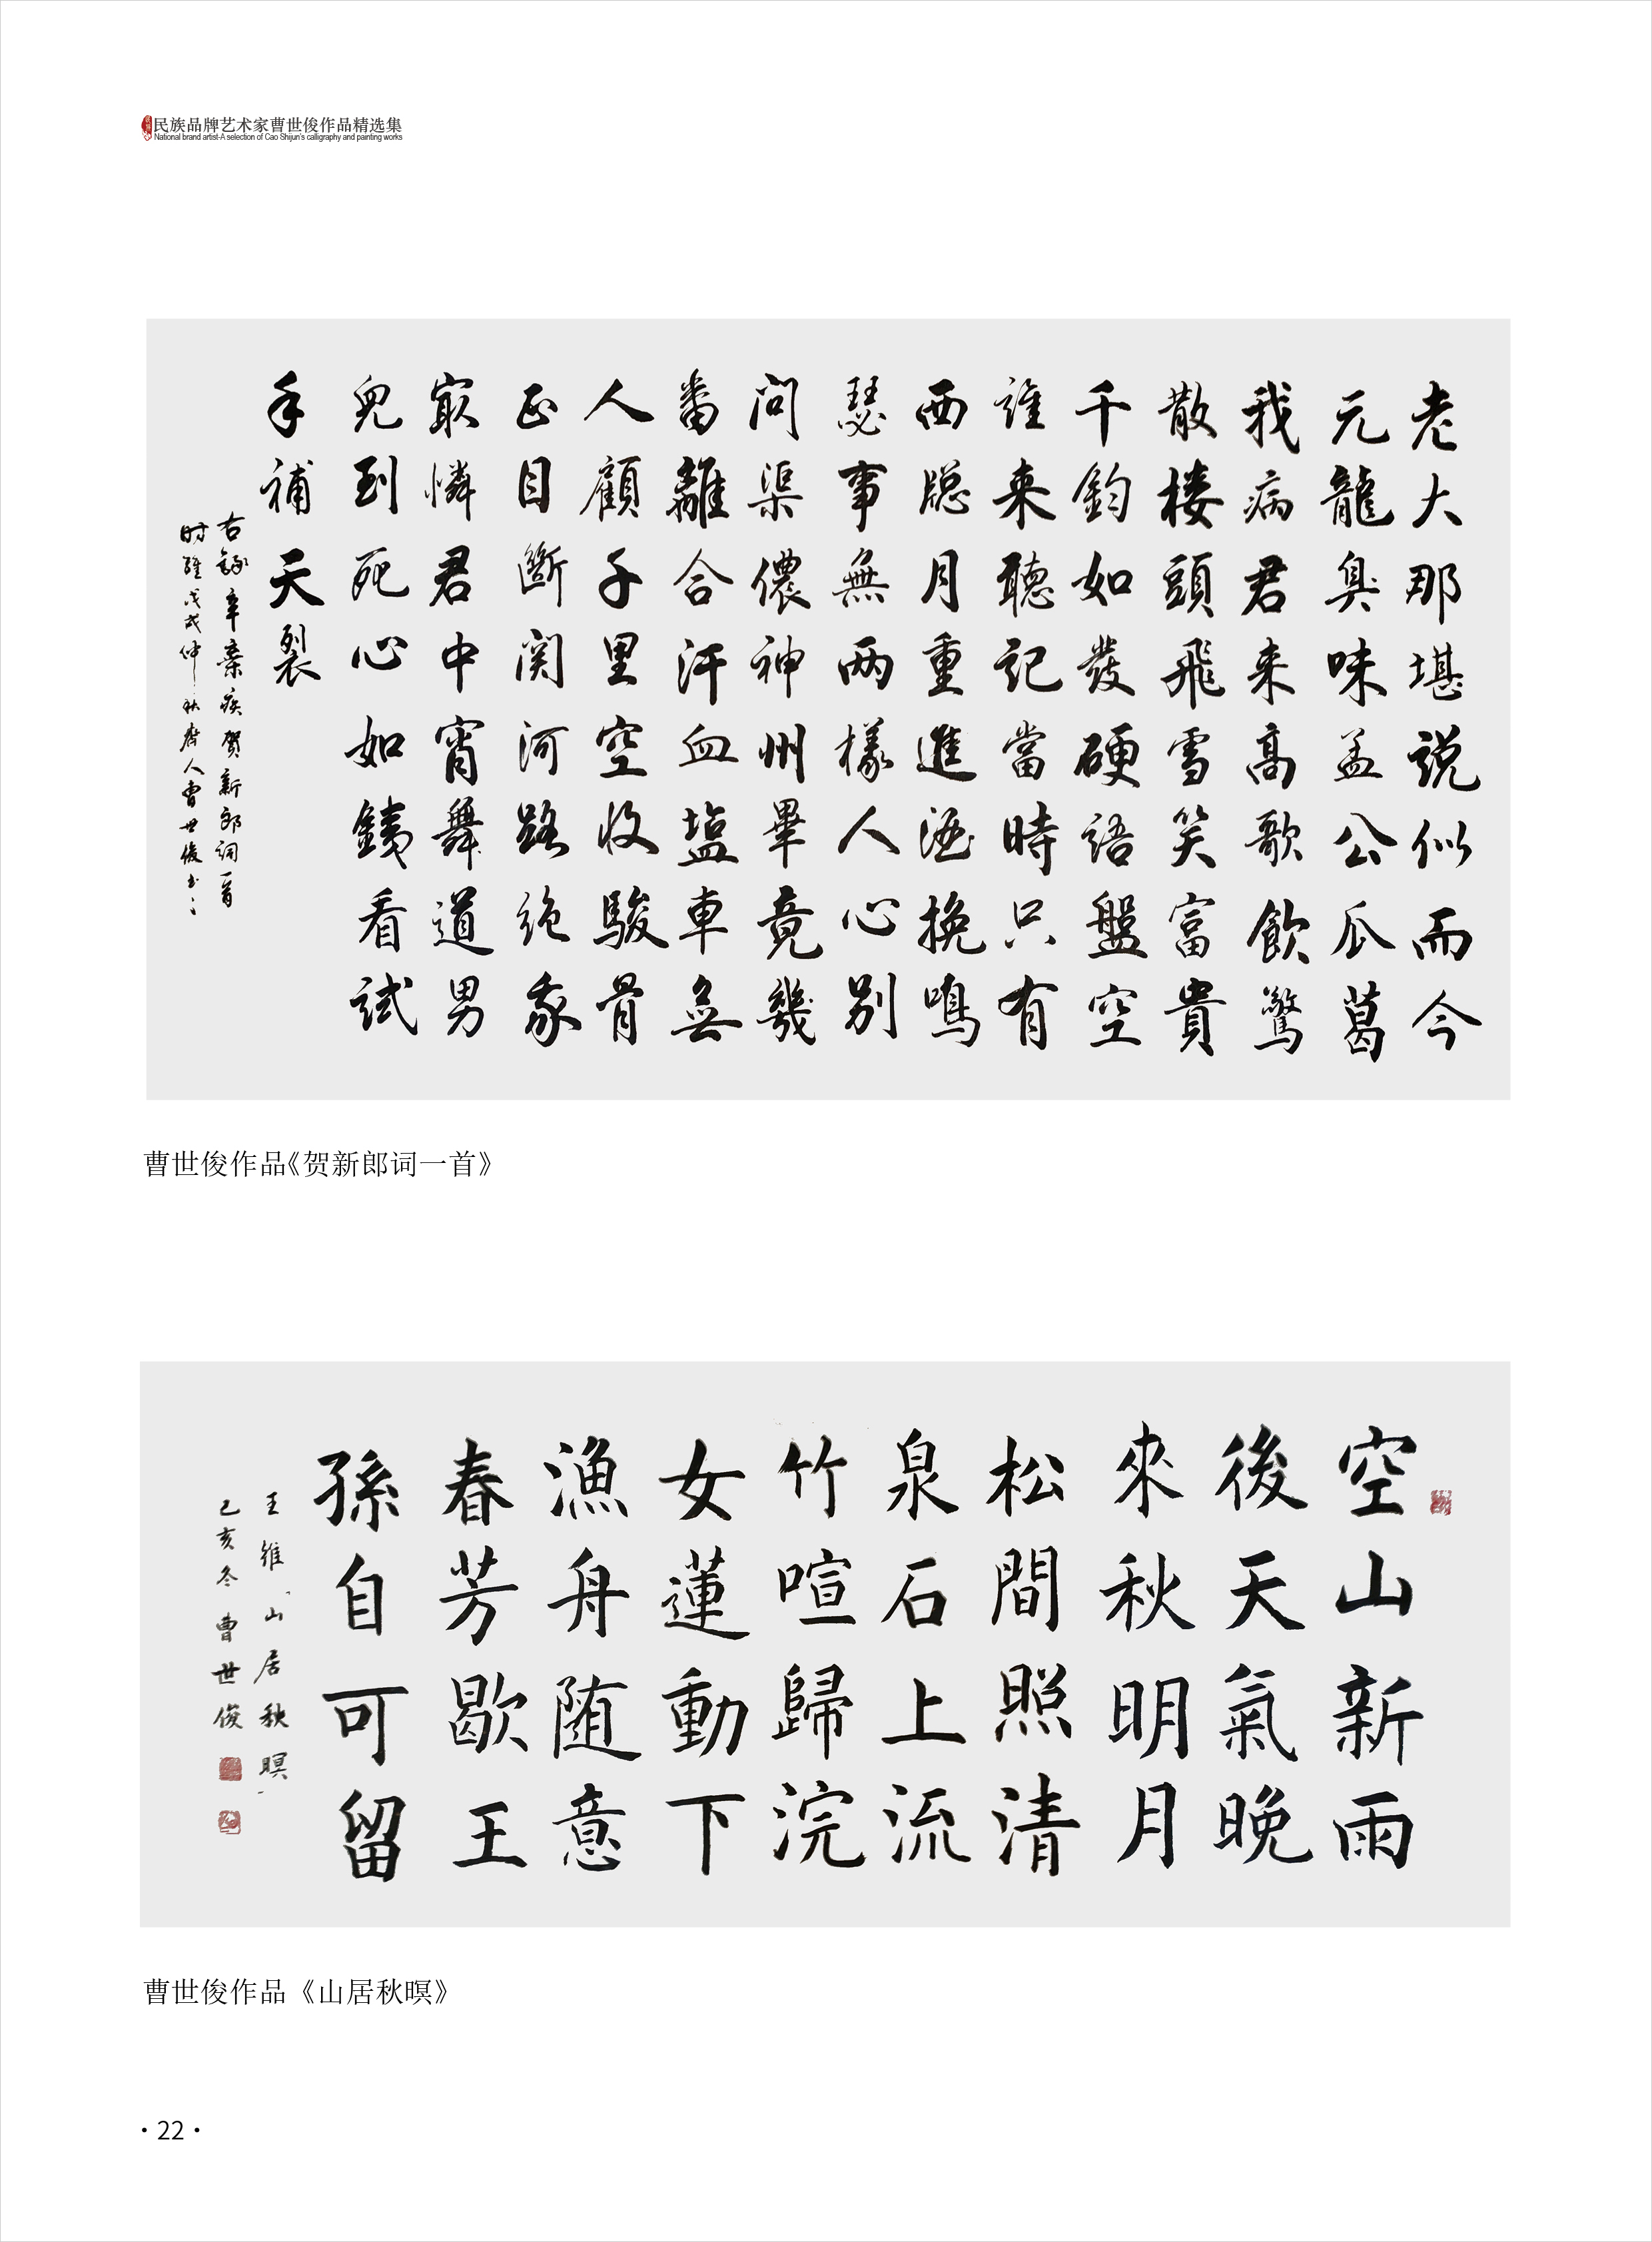 民族品牌艺术家曹世俊作品精选集
National brand artist-A selection of Cao Shijun's calligraphy and painting works
老大那堪説似而今
元龍臭味孟公瓜葛
我病君来高歌飲驚
散楼頭飛雪笑富貴
千鈞如發硬語盤空
誰来聽記當時只有
西窓月重進酒換鳴
瑟事無两樣人心别
問渠儂神州畢竟幾
番離合汗血塩車無
人顧千里空收駿骨
正目斷関河路绝我
最憐君中宵舞道男
兒到死心如鐵看試
手補天裂
右録辛棄疾贺新郎词一首
时維戊戌仲秋唐人曹世俊书
曹世俊作品《贺新郎词一首》
空山新雨
後天氣晚
來秋明月
松間照清
泉石上流
竹喧歸浣
女蓮動下
漁舟随意
春芳歇王
孫自可留
王維「山居秋暝」
己亥冬曹世俊
曹世俊作品《山居秋暝》
·22·